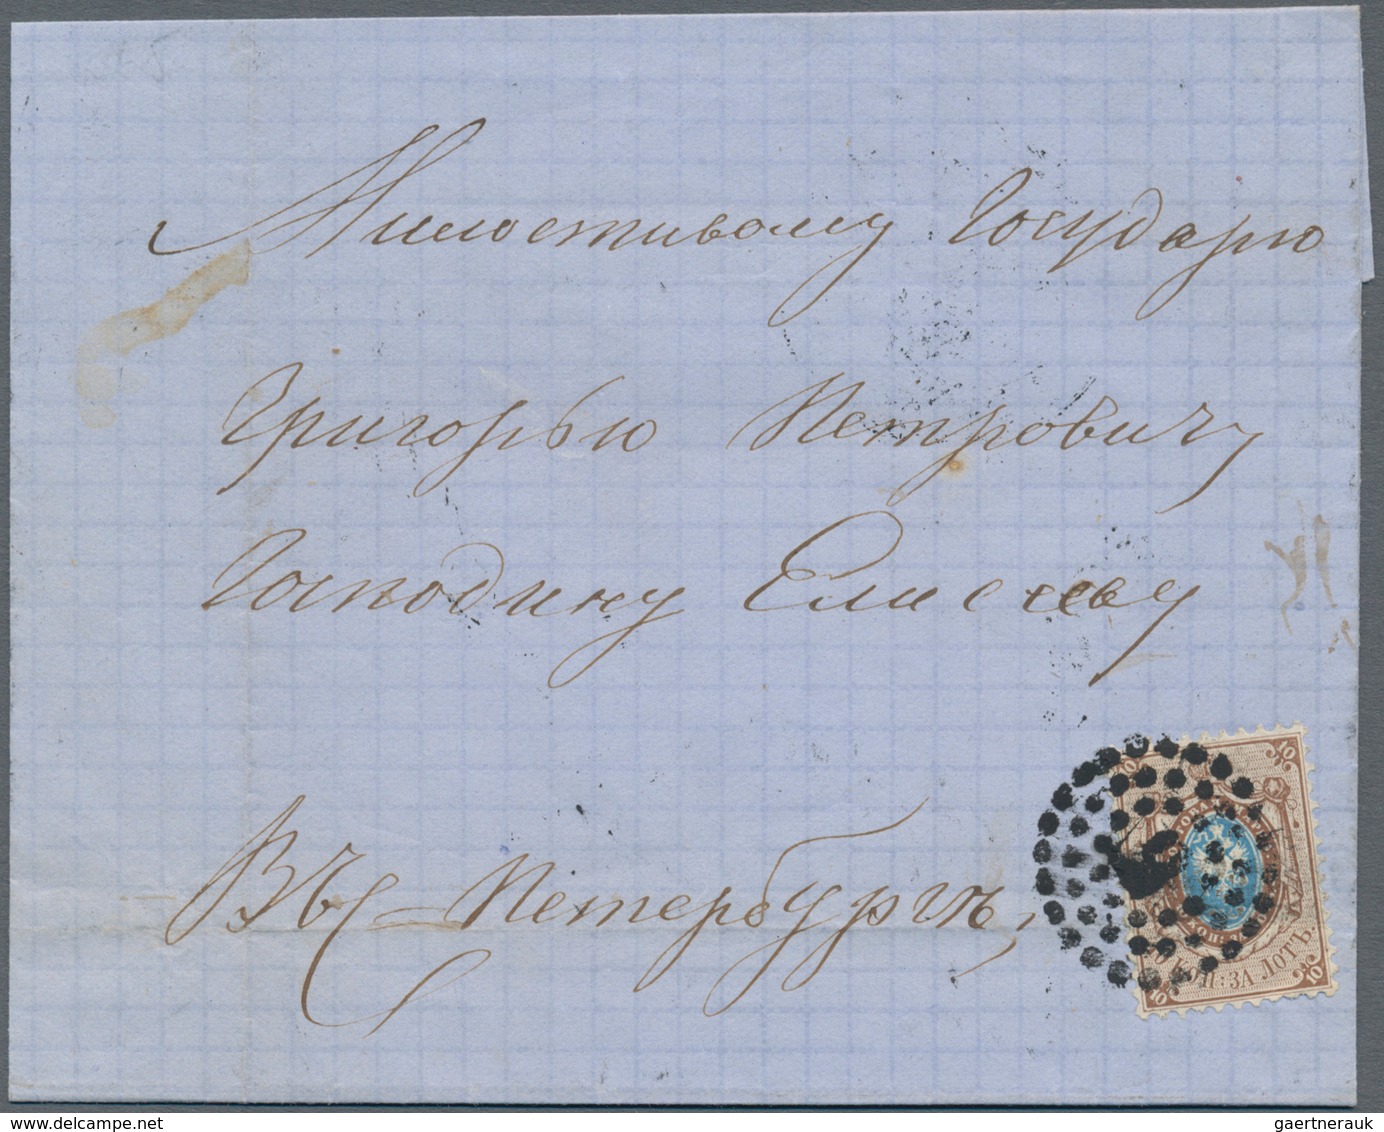 Милостивому Государю
Григорью Петровичу
Господину Елисееву
Въ С-Петербургъ,
10
10
КОП: ЗА ЛОТЪ.
10
10
gaertnerauk